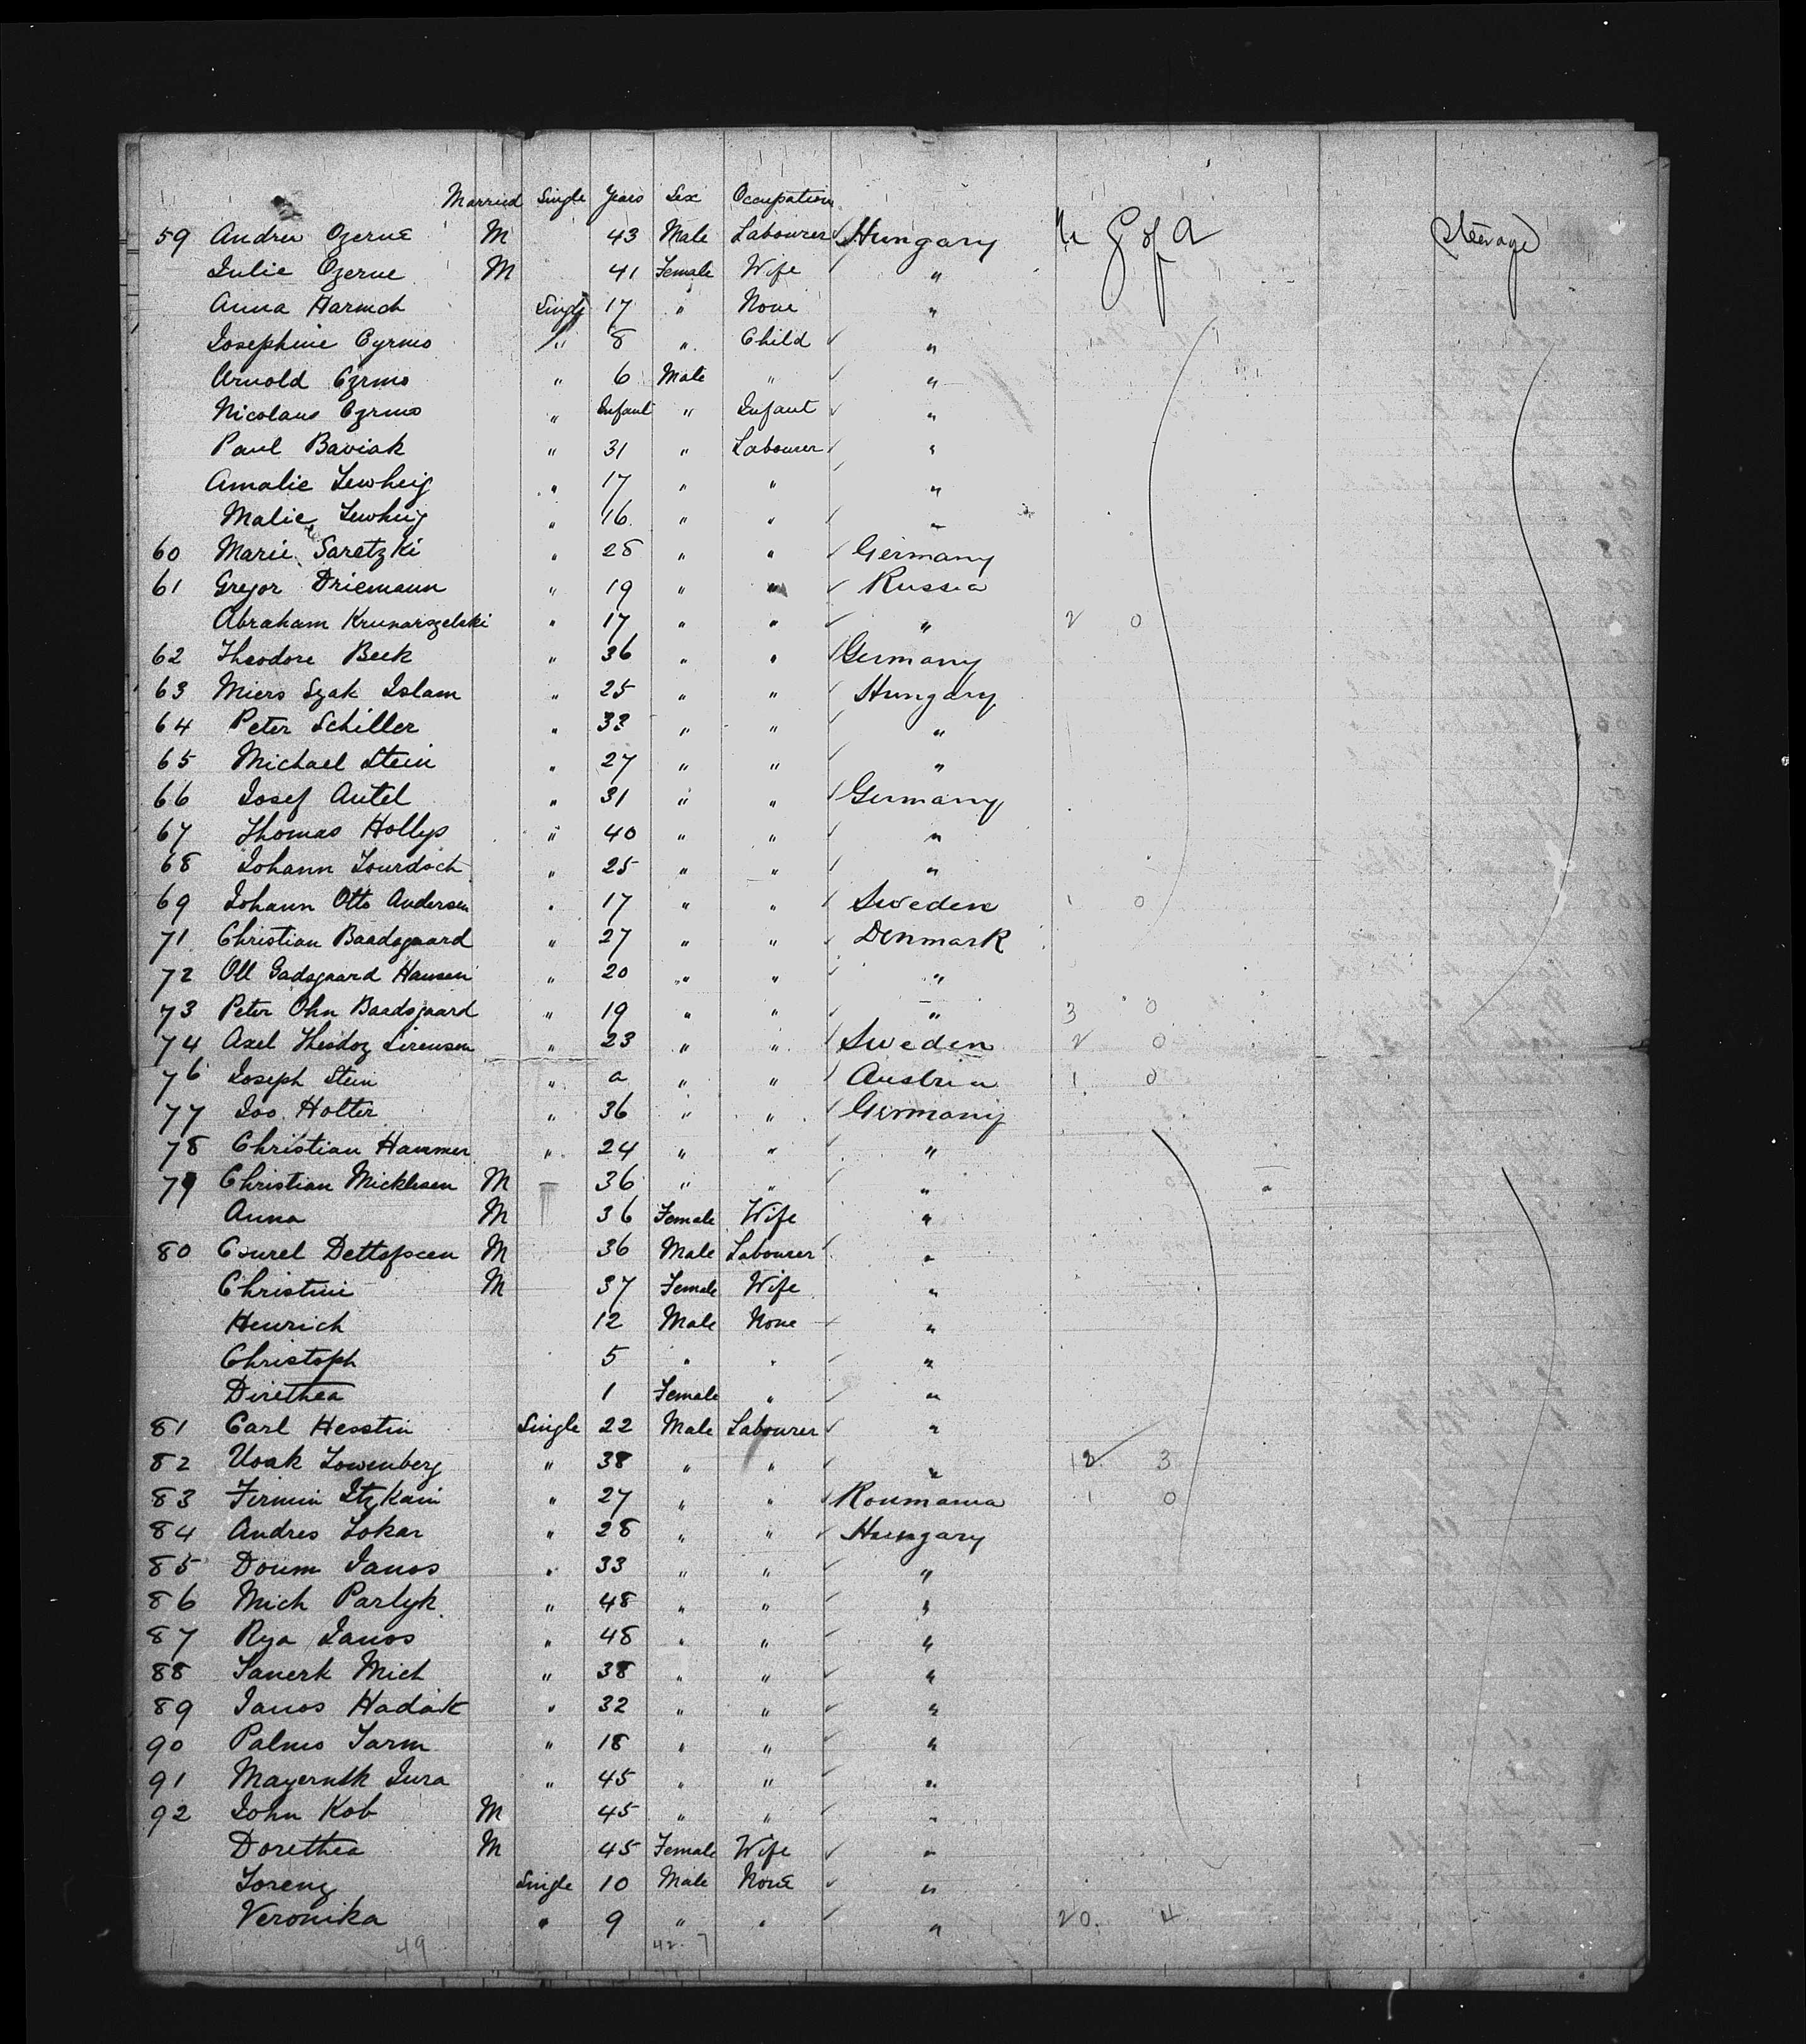 Married Single Years Sex Occupation
59 Andrew Ozerne M 43 Male Labourer Hungary U S of A Steerage
Julie Ozerne M 41 Female Wife "
Anna Harmch Single 17 " None "
Josephine Cyrmo " 8 " Child "
Arnold Czrmo " 6 Male " "
Nicolaus Czrmo " Infant " Infant "
Paul Baviak " 31 " Labourer "
Amalie Lewheig " 17 " " "
Malie Lewheig " 16 " " "
60 Marie Saretzki " 28 " " Germany
61 Gregor Driemann " 19 " " Russia
Abraham Krunarszelski " 17 " " " 2 0
62 Theodore Beek " 36 " " Germany
63 Miers Szak Islam " 25 " " Hungary
64 Peter Schiller " 33 " " "
65 Michael Stein " 27 " " "
66 Josef Antel " 31 " " Germany
67 Thomas Hollys " 40 " " "
68 Johann Lourdoch " 25 " " "
69 Johann Otto Andersen " 17 " " Sweden 1 0
71 Christian Baadsgaard " 27 " " Denmark
72 Oll Gadsgaard Hansen " 20 " " "
73 Peter Ohn Baadsgaard " 19 " " " 3 0
74 Axel Theodoz Sirensen " 23 " " Sweden 2 0
76 Joseph Stein " a " " Austria 1 0
77 Joo. Holter " 36 " " Germany
78 Christian Hammer " 24 " " "
79 Christian Micklesen M 36 " " "
Anna M 36 Female Wife "
80 Conrel Dettafseen M 36 Male Labourer "
Christine M 37 Female Wife "
Henrich 12 Male None "
Christoph 5 " " "
Direthea 1 Female " "
81 Carl Hesstin Single 22 Male Labourer "
82 Usak Lowenberg " 38 " " " 12 3
83 Firmin Itzkain " 27 " " Roumania 1 0
84 Andres Lokar " 28 " " Hungary
85 Doum Janos " 33 " " "
86 Mich Parlyk " 48 " " "
87 Rya Janos " 48 " " "
88 Sanerk Mich " 38 " " "
89 Janos Hadak " 32 " " "
90 Palmo Jarm " 18 " " "
91 Mayernik Jura " 45 " " "
92 John Kob M 45 " " "
Dorethea M 45 Female Wife "
Lorenz Single 10 Male None "
Veronika " 9 " " " 20 4
49 42 7